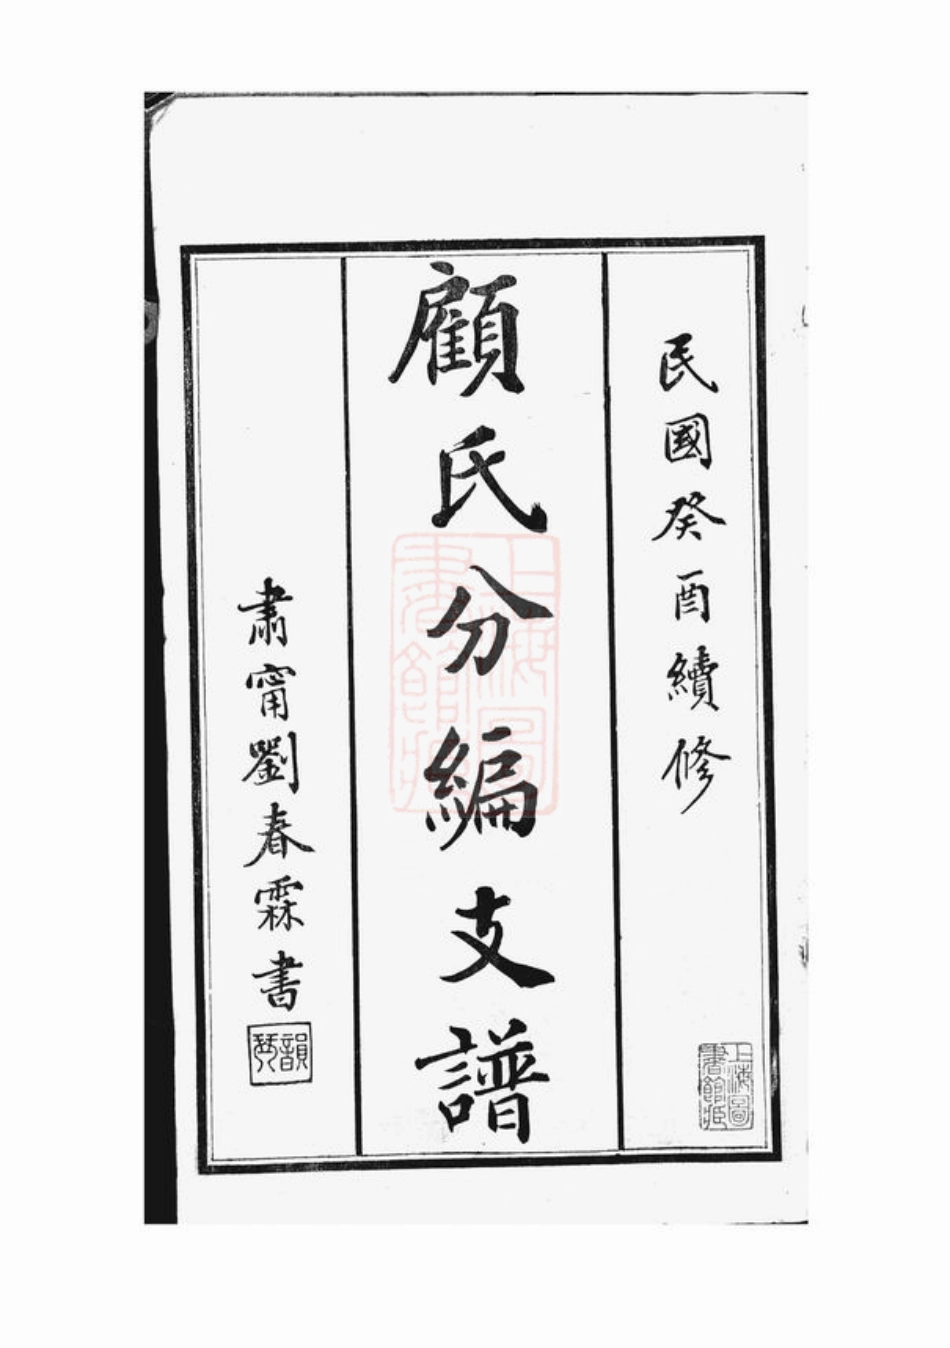 民國癸酉續修
上海圖書館藏
顧氏分編支譜
上海圖書館藏
肅甯劉春霖書
韻琴